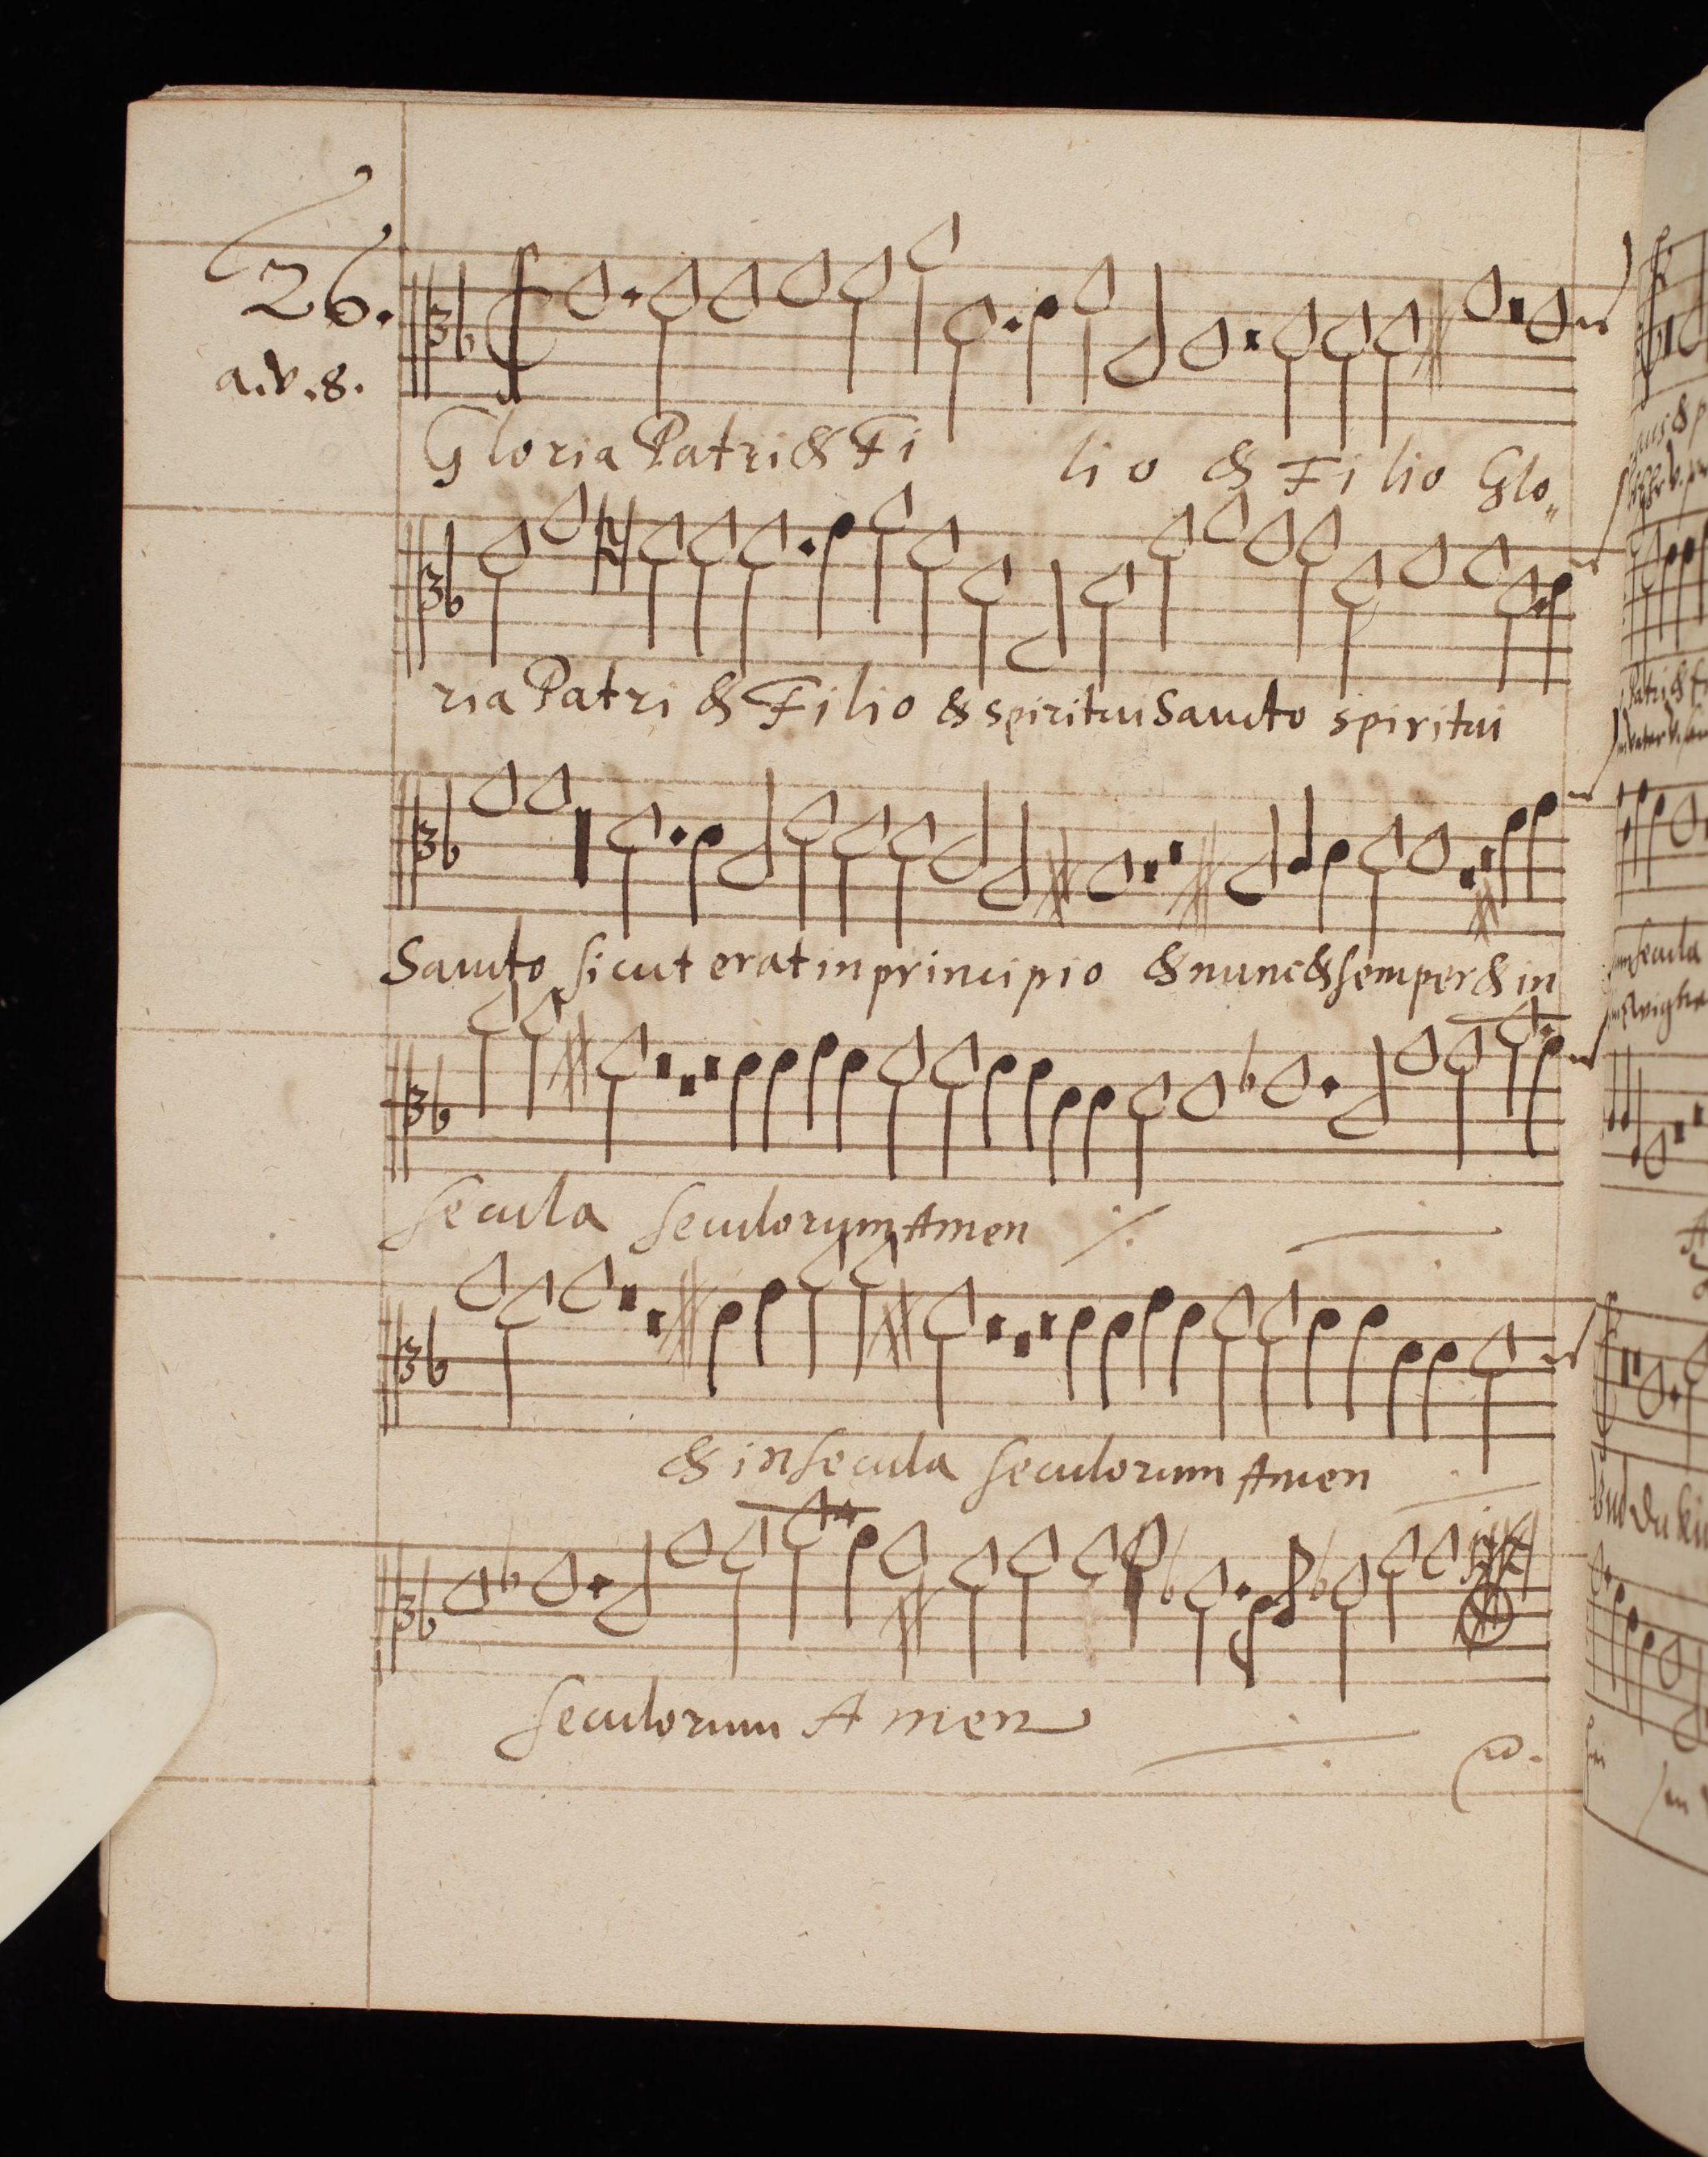 26.
a.v.8.
Gloria Patri & Fi lio & Filio Glo„
ria Patri & Filio & spiritui Sancto spiritui
Sancto sicut erat in principio & nunc & semper & in
secula seculorum Amen ·/.
& in secula seculorum Amen
seculorum Amen